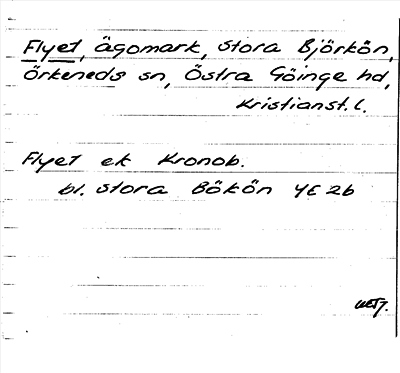 Flyet, ägomark, Stora Björkön,
Örkeneds sn, Östra Göinge hd,
Kristianst. l.
Flyet ek Kronob.
bl. Stora Bökön 4E 2b